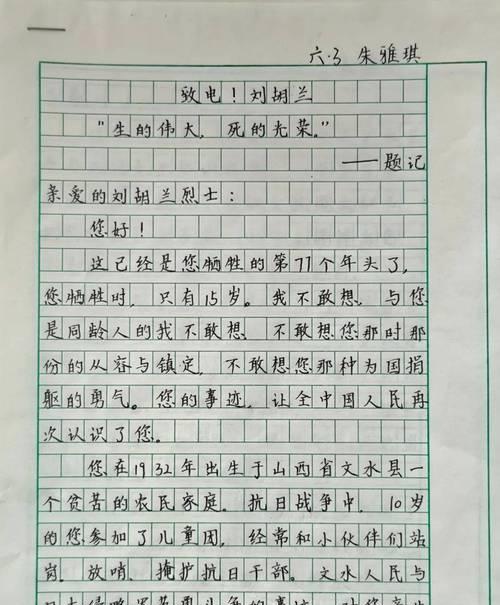 六.3 朱雅琪
致电！刘胡兰
"生的伟大，死的光荣。"
——题记
亲爱的刘胡兰烈士：
您好！
这已经是您牺牲的第77个年头了，
您牺牲时，只有15岁。我不敢想，与您
是同龄人的我不敢想，不敢想您那时那
份的从容与镇定，不敢想您那种为国捐
躯的勇气。您的事迹，让全中国人民再
次认识了您。
您在1932年出生于山西省文水县一
个贫苦的农民家庭。抗日战争中，10岁
的您参加了儿童团，经常和小伙伴们站
岗，放哨，掩护抗日干部。文水人民与